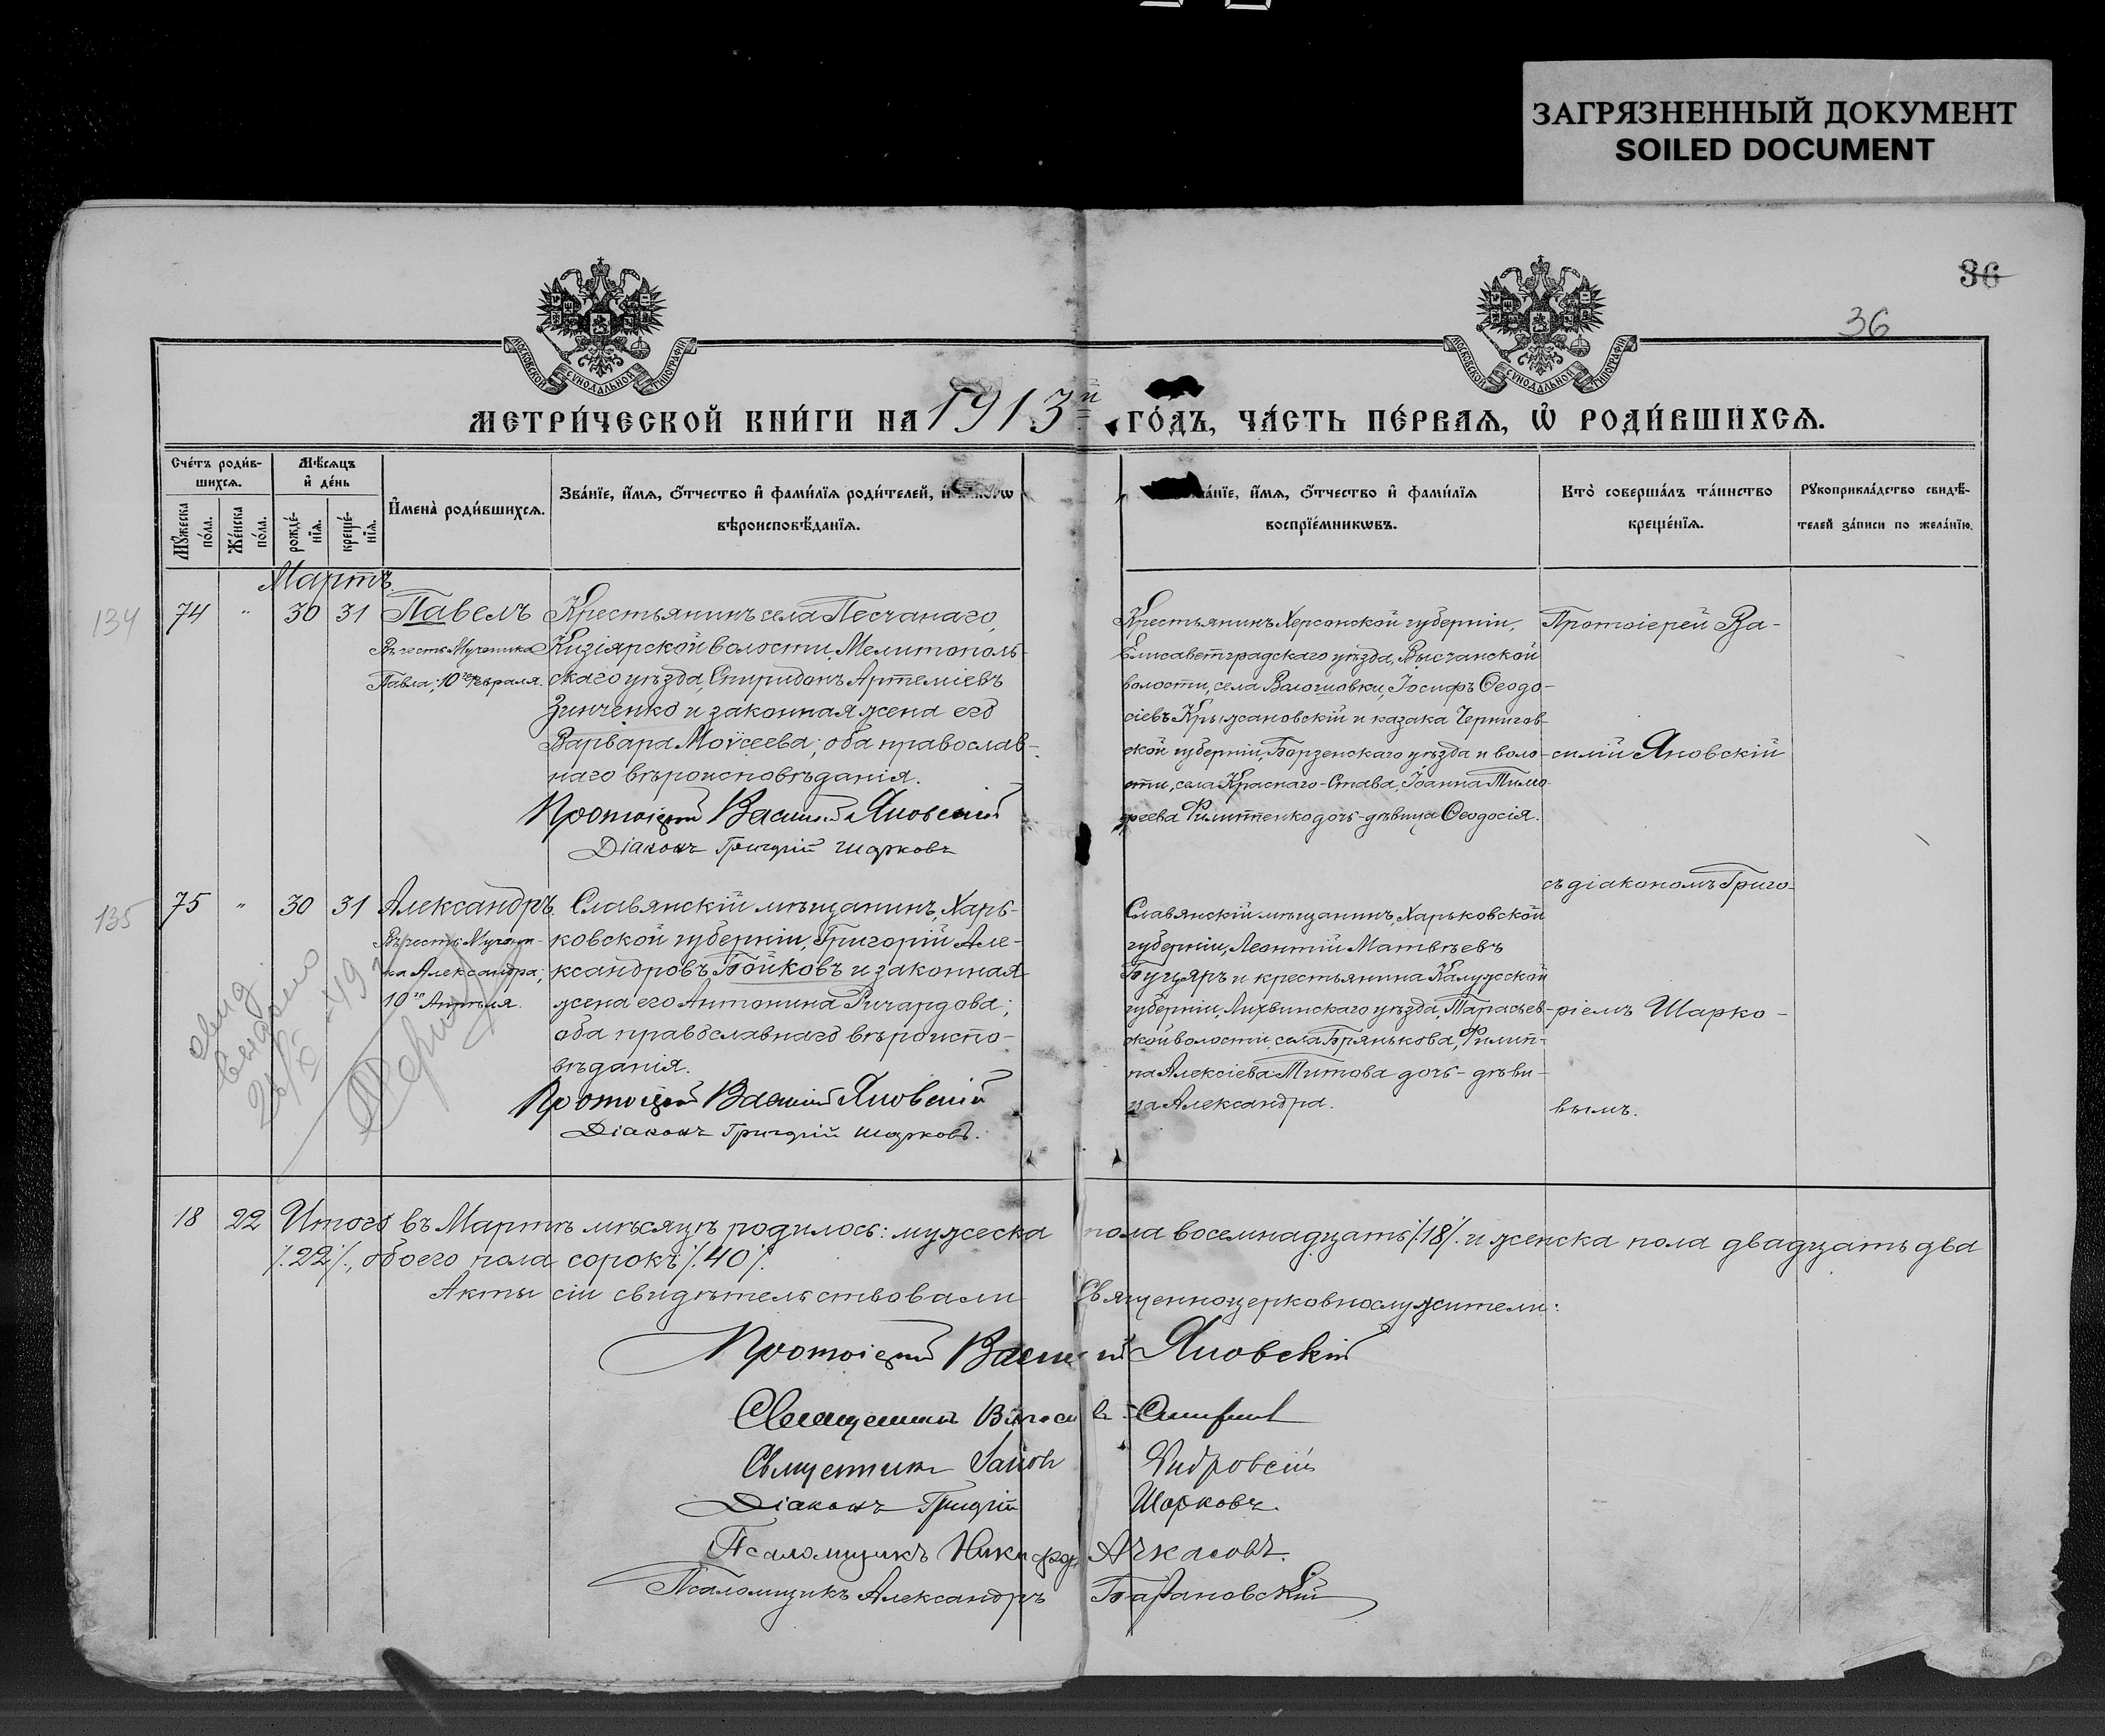 ЗАГРЯЗНЕННЫЙ ДОКУМЕНТ
SOILED DOCUMENT
36
36
МОСКОВСКОЙ СѴНОДАЛЬНОЙ ТИПОГРАФІИ
МОСКОВСКОЙ СѴНОДАЛЬНОЙ ТИПОГРАФІИ
МЕТРИ́ЧЕСКОЙ КНИ́ГИ НА 1913й ГО́ДЪ, ЧА́СТЬ ПЕ́РВАЯ, Ѡ҆ РОДИ́ВШИХСЯ.
Сче́тъ роди́в-
шихся.
Мѣ́сяцъ
и҆ де́нь
Мꙋ́жеска
по́ла.
Же́нска
по́ла.
рожде́-
нїя.
креще́-
нїя.
И҆мена̀ роди́вшихся.
Зва́нїе, и҆́мя, ѻ҆́тчество и҆ фами́лїя роди́телей, и҆
вѣроисповѣ́данїя.
и҆́мя, ѻ҆́тчество и҆ фами́лїя
воспрїе́мникѡвъ.
Кто̀ соверша́лъ та́инство
креще́нїя.
Рꙋкоприкла́дство свидѣ́-
телей за́писи по жела́нїю.
Мартъ.
134
74 " 30 31 Павелъ
Въ честь Мученика
Павла; 10го Февраля.
Крестьянинъ села Песчанаго,
Кизіярской волости, Мелитополь-
скаго уѣзда, Спиридонъ Артеміевъ
Зинченко и законная жена его
Варвара Моѵсеева; оба православ-
наго вѣроисповѣданія.
Протоіерей Василій Яновскій
Діаконъ Григорій Шарковъ
Крестьянинъ Херсонской губерніи,
Елисаветградскаго уѣзда, Высчанской
волости, села Ѳеодо-
сіевъ Крыжановскій и казака Чернигов-
ской губерніи, Борзенскаго уѣзда и воло-
сти, села Краснаго-Става, Іоанна Тимо-
ѳеева Филиппенко дочь-дѣвица Ѳеодосія.
Протоіерей Ва-
силій Яновскій
съ діакономъ Григо-
ріемъ Шарко-
вымъ.
135
75 " 30 31 Александръ.
Въ честь Мучени-
ка Александра;
10го Апрѣля.
Славянскій мѣщанинъ, Харь-
ковской губерніи, Григорій Але-
ксандровъ Бойковъ и законная
жена его Антонина Ричардова;
оба православнаго вѣроиспо-
вѣданія.
Протоіерей Василій Яновскій
Діаконъ Григорій Шарковъ.
Славянскій мѣщанинъ, Харьковской
губерніи, Леонтій Матвѣевъ
и крестьянина Калужской
губерніи, Лихвинскаго уѣзда,
ской волости, села Брянькова, Филип-
па Алексіева Титова дочь-дѣви-
ца Александра.
свид.
выдано
18 22 Итого въ Мартѣ мѣсяцѣ родилось: мужеска пола восемнадцать /.18/. и женска пола двадцать два
/.22/., обоего пола сорокъ /.40/.
Акты сіи свидѣтельствовали Священноцерковнослужители:
Протоіерей Василій Яновскій
Священникъ
Священникъ
Діаконъ Григорій Шарковъ.
Псаломщикъ Никифоръ Ачкасовъ.
Псаломщикъ Александръ Барановскій